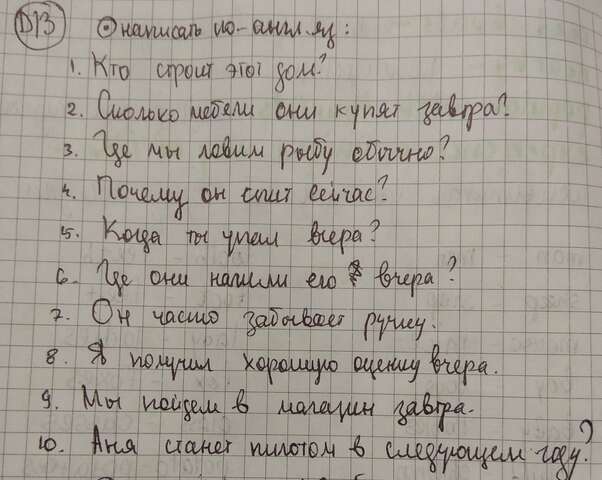 Д/З ⊙ написать по-англ.яз:
1. Кто строит этот дом?
2. Сколько мебели они купят завтра?
3. Где мы ловим рыбу обычно?
4. Почему он спит сейчас?
5. Когда ты упал вчера?
6. Где они нашли его вчера?
7. Он часто забывает ручку.
8. Я получил хорошую оценку вчера.
9. Мы пойдем в магазин завтра.
10. Аня станет пилотом в следующем году?